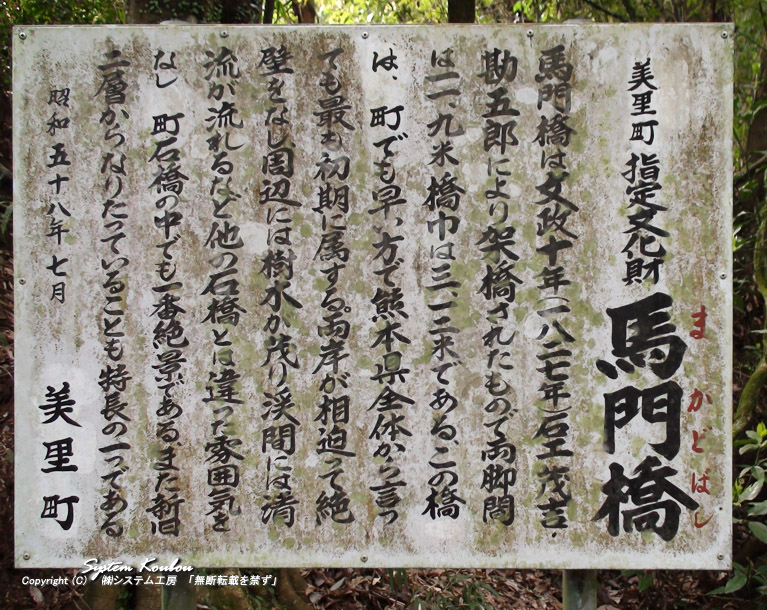 美里町 指定文化財 馬門橋
まかどばし
馬門橋は文政十年(一八二七年)石工 茂吉・
勘五郎により架橋されたもので両脚間
は一一、九米 橋巾は三、一二米である、この橋
は、町でも早い方で熊本県全体から言っ
ても最も初期に属する。両岸が相迫って絶
壁をなし周辺には樹木が茂り渓間には清
流が流れるなど他の石橋とは違った雰囲気を
なし 町石橋の中でも一番絶景である、また新旧
二層からなりたっていることも特長の一つである
昭和五十八年七月
美里町
System Koubou
Copyright (C) ㈱システム工房 「無断転載を禁ず」